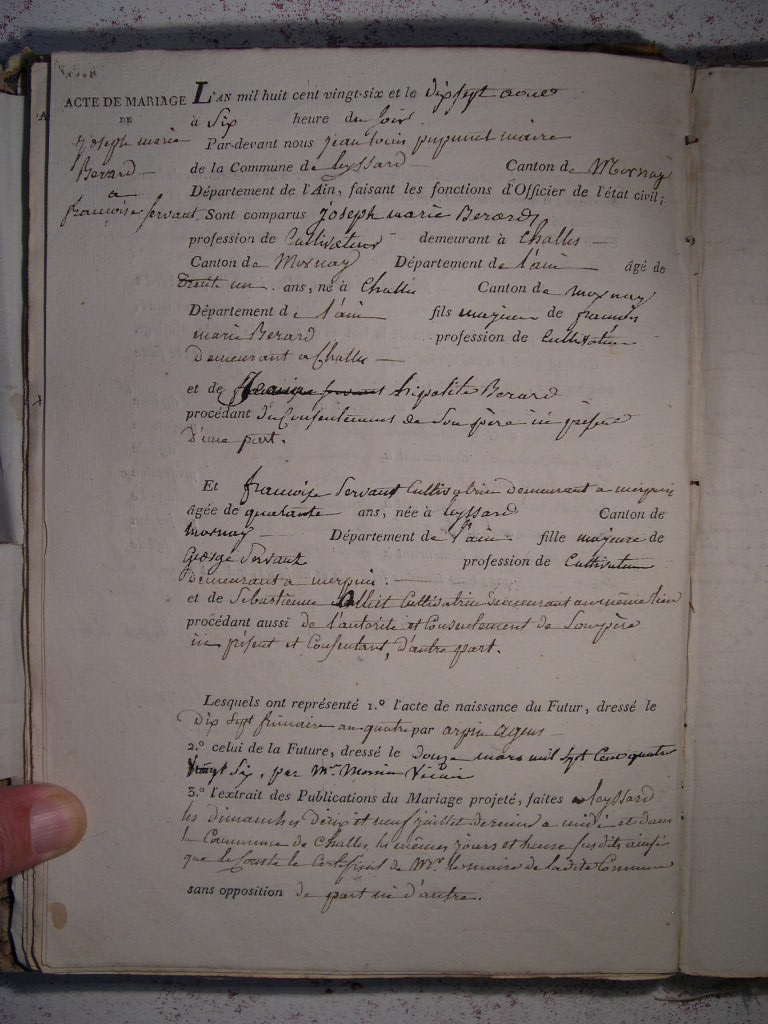 ACTE DE MARIAGE
DE
Joseph marie
Berard
a
françoise servant
L'AN mil huit cent vingt-six et le dix sept aout
à Six heure du soir
Par-devant nous jean louis pupunat maire
de la Commune de leyssard Canton de Mornay
Département de l'Ain, faisant les fonctions d'Officier de l'état civil;
Sont comparus Joseph marie Berard
profession de Cultivateur demeurant à Challes
Canton de Mornay Département de l'ain âgé de
trente un ans, né à Challes Canton de mornay
Département de l'ain fils majeur de françois
marie Berard profession de Cultivateur
Demeurant a Challes
et de hipolite Berard
procédant du Consentement de Son père ici présent
D'une part.
Et françoise Servant Cultivatrice demeurant a
âgée de quarante ans, née à leyssard Canton de
Mornay Département de l'ain fille majeure de
George Servant profession de Cultivateur
Demeurant a
et de Sebastienne Cultivatrice demeurant au même lieu
procédant aussi de l'autorité et Consentement de Son père
ici présent et Consentant, d'autre part.
Lesquels ont représenté 1.º l'acte de naissance du Futur, dressé le
Dix sept frimaire an quatre par
2.º celui de la Future, dressé le douze mars mil sept Cent quatre
Vingt Six, par Mr. Vicaire
3.º l'extrait des Publications du Mariage projeté, faites a leyssard
les dimanches Deux et neuf juillet dernier a midi et dans
la Commune de Challes, les mêmes jours et heure susdits ainsi
que le Conste le Certificat de Mr. le maire de la dite Commune
sans opposition de part ni d'autre.